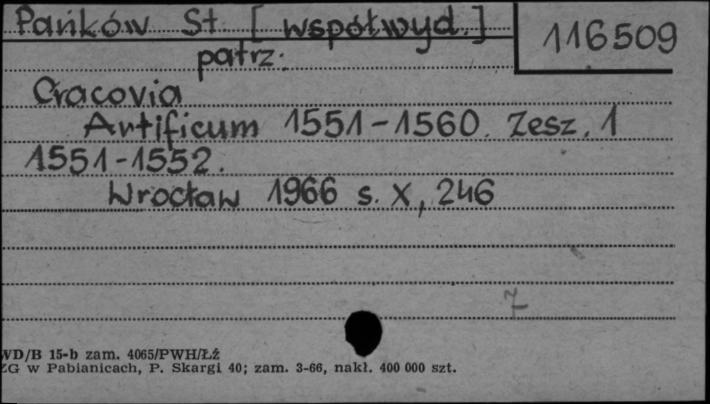 Pańków St. [współwyd.]
116509
patrz:
Cracovia
Artificum 1551-1560. Zesz. 1
1551-1552.
Wrocław 1966 s. X, 246
7
WD/B 15-b zam. 4065/PWH/Łź
ZG w Pabianicach, P. Skargi 40; zam. 3-66, nakł. 400 000 szt.